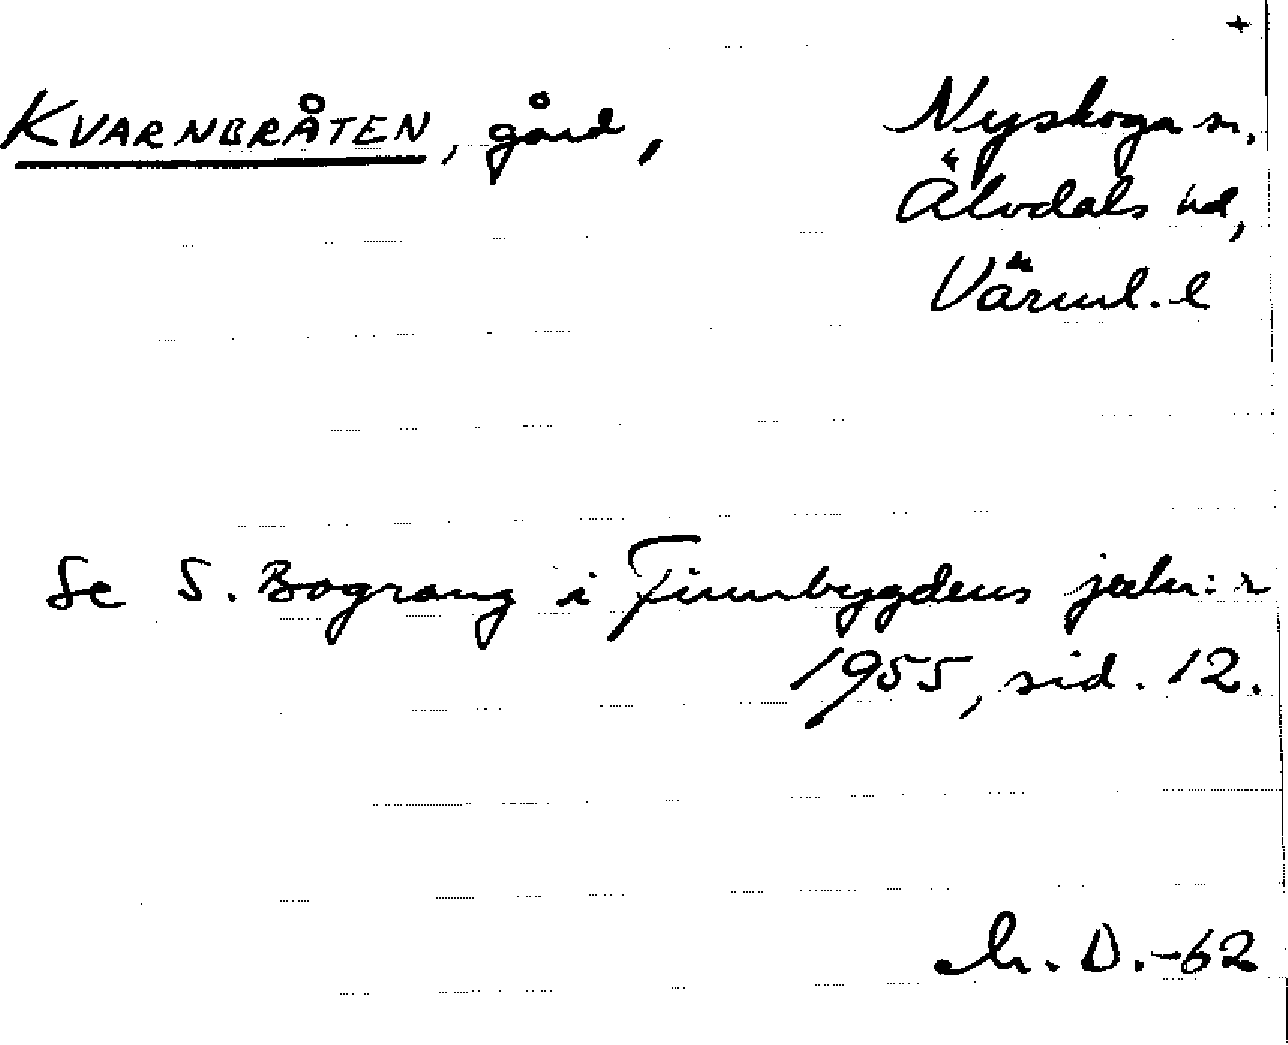 +
KVARNBRÅTEN, gård, Nyskoga sn,
Älvdals hd,
Värml. l
Se S. Bograng i Finnbygdens julnr
1955, sid. 12.
M. D. -62